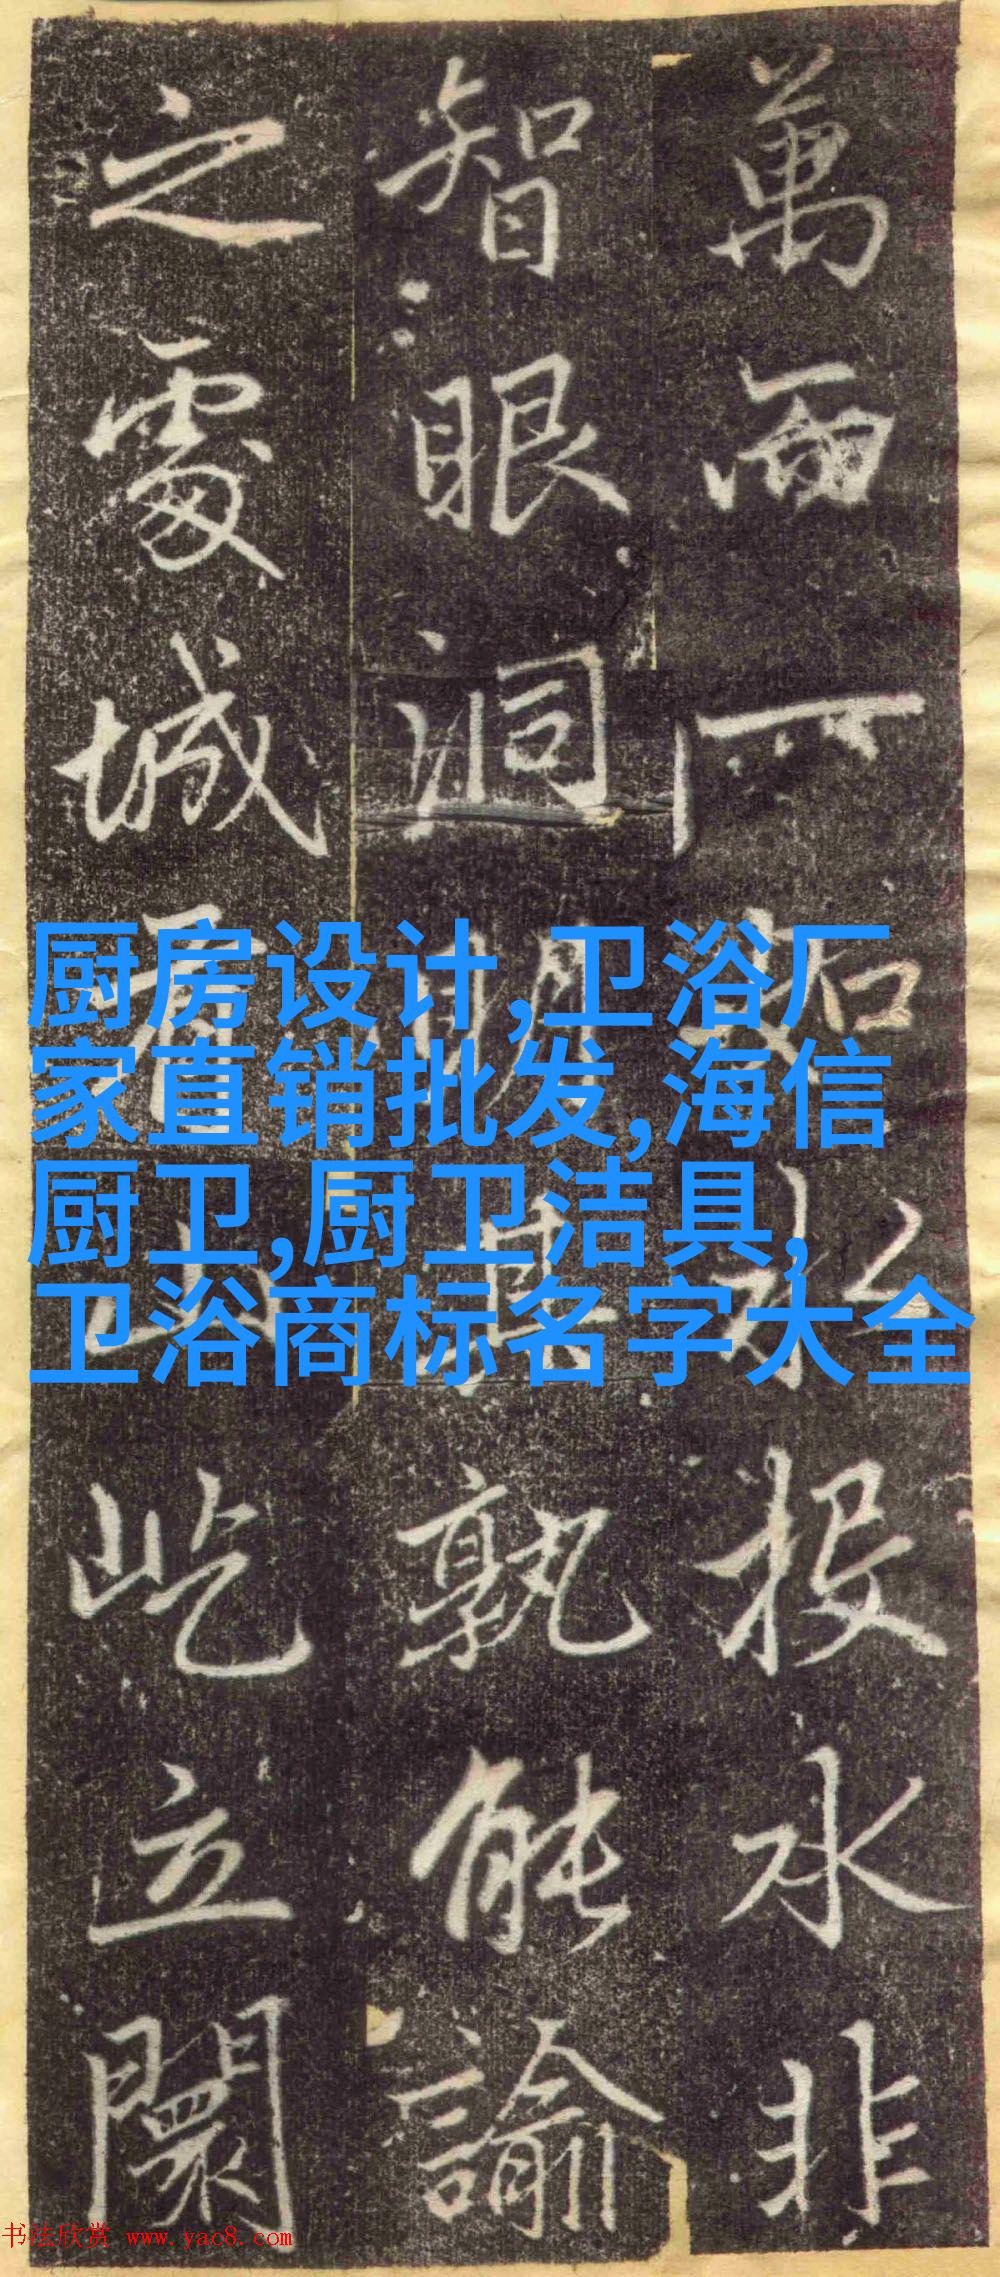 萬而一如 投水非
智眼洞明 孰能諭
之處城 屹立闤
厨房设计,卫浴厂
家直销批发,海信
厨卫,厨卫洁具,
卫浴商标名字大全
书法欣赏 www.yac8.com